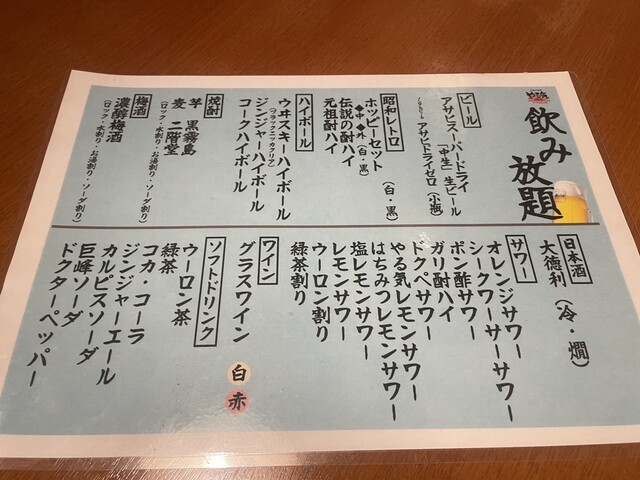 飲み放題
ビール
アサヒスーパードライ
「中生」生ビール
ノンアルコール アサヒドライゼロ (小瓶)
昭和レトロ
ホッピーセット (白・黒)
◆中 ◆外 (白・黒)
伝説の酎ハイ
元祖酎ハイ
ハイボール
ウヰスキーハイボール
(ブラックニッカクリア)
ジンジャーハイボール
コークハイボール
焼酎
芋 黒霧島
麦 二階堂
(ロック・水割り・お湯割り・ソーダ割り)
梅酒
濃醇梅酒
(ロック・水割り・お湯割り・ソーダ割り)
日本酒
大徳利 (冷・燗)
サワー
オレンジサワー
シークワーサーサワー
ポン酢サワー
ガリ酎ハイ
ドクペサワー
やる気レモンサワー
はちみつレモンサワー
塩レモンサワー
レモンサワー
ウーロン割り
緑茶割り
ワイン
グラスワイン 白 赤
ソフトドリンク
ウーロン茶
緑茶
コカ・コーラ
ジンジャーエール
カルピスソーダ
巨峰ソーダ
ドクターペッパー